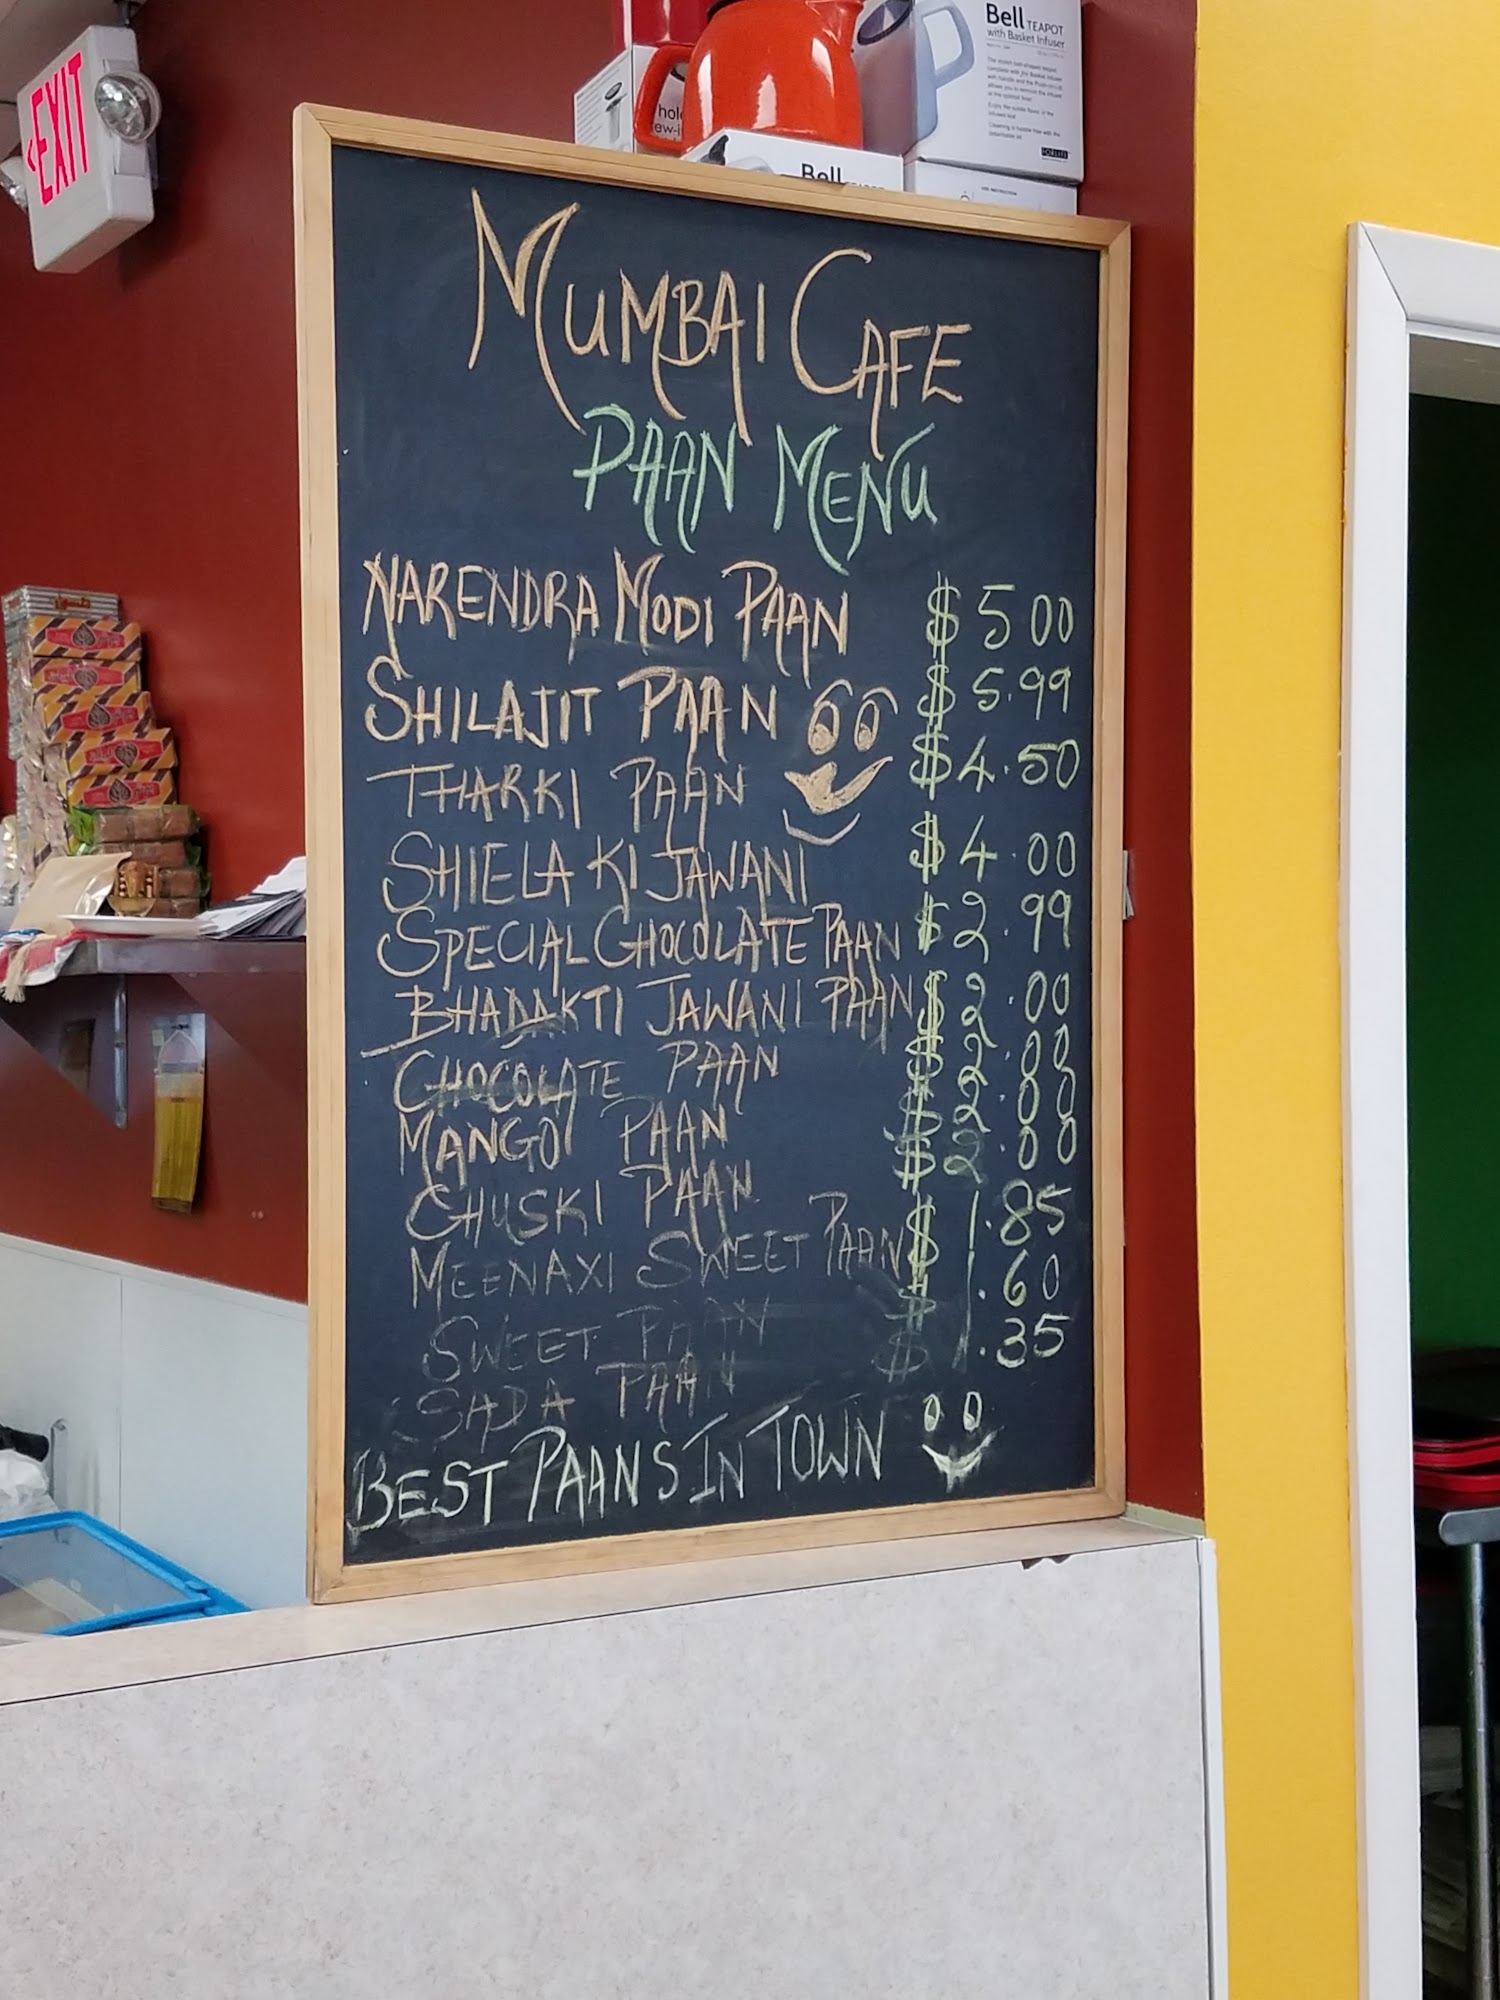 EXIT
Bell TEAPOT
with Basket Infuser
Bell
MUMBAI CAFE
PAAN MENU
NARENDRA MODI PAAN $5 00
SHILAJIT PAAN $5.99
THARKI PAAN $4.50
SHIELA KI JAWANI $4.00
SPECIAL CHOCOLATE PAAN $2.99
BHADAKTI JAWANI PAAN $2.00
CHOCOLATE PAAN $2.00
MANGO PAAN $2.00
CHUSKI PAAN $2.00
MEENAXI SWEET PAAN $1.85
SWEET PAAN $1.60
SADA PAAN $1.35
BEST PAANS IN TOWN